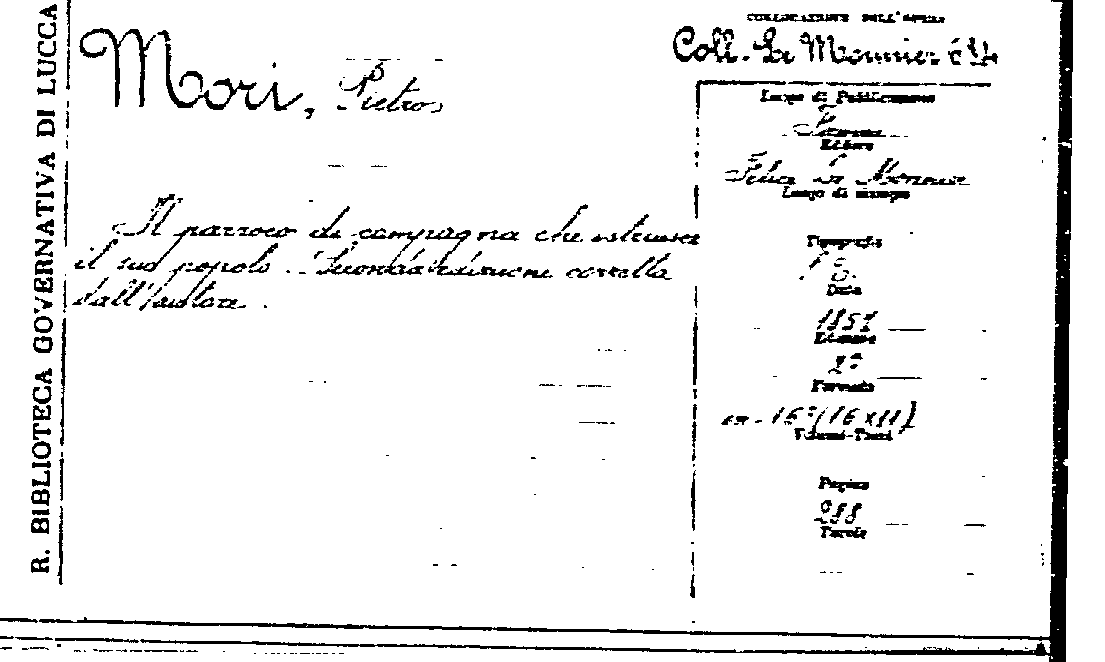 R. BIBLIOTECA GOVERNATIVA DI LUCCA
Mori, Pietro
Il parroco di campagna che istruisce
il suo popolo. Seconda edizione corretta
dall'autore.
COLLOCAZIONE DELL'OPERA
Coll. Le Monnier
Luogo di Pubblicazione
Firenze
Editore
Felice Le Monnier
Luogo di stampa
Tipografia
Data
1851
Edizione
2ª
Formato
in-16º (16 x 11)
Volumi-Tomi
Pagine
288
Tavole